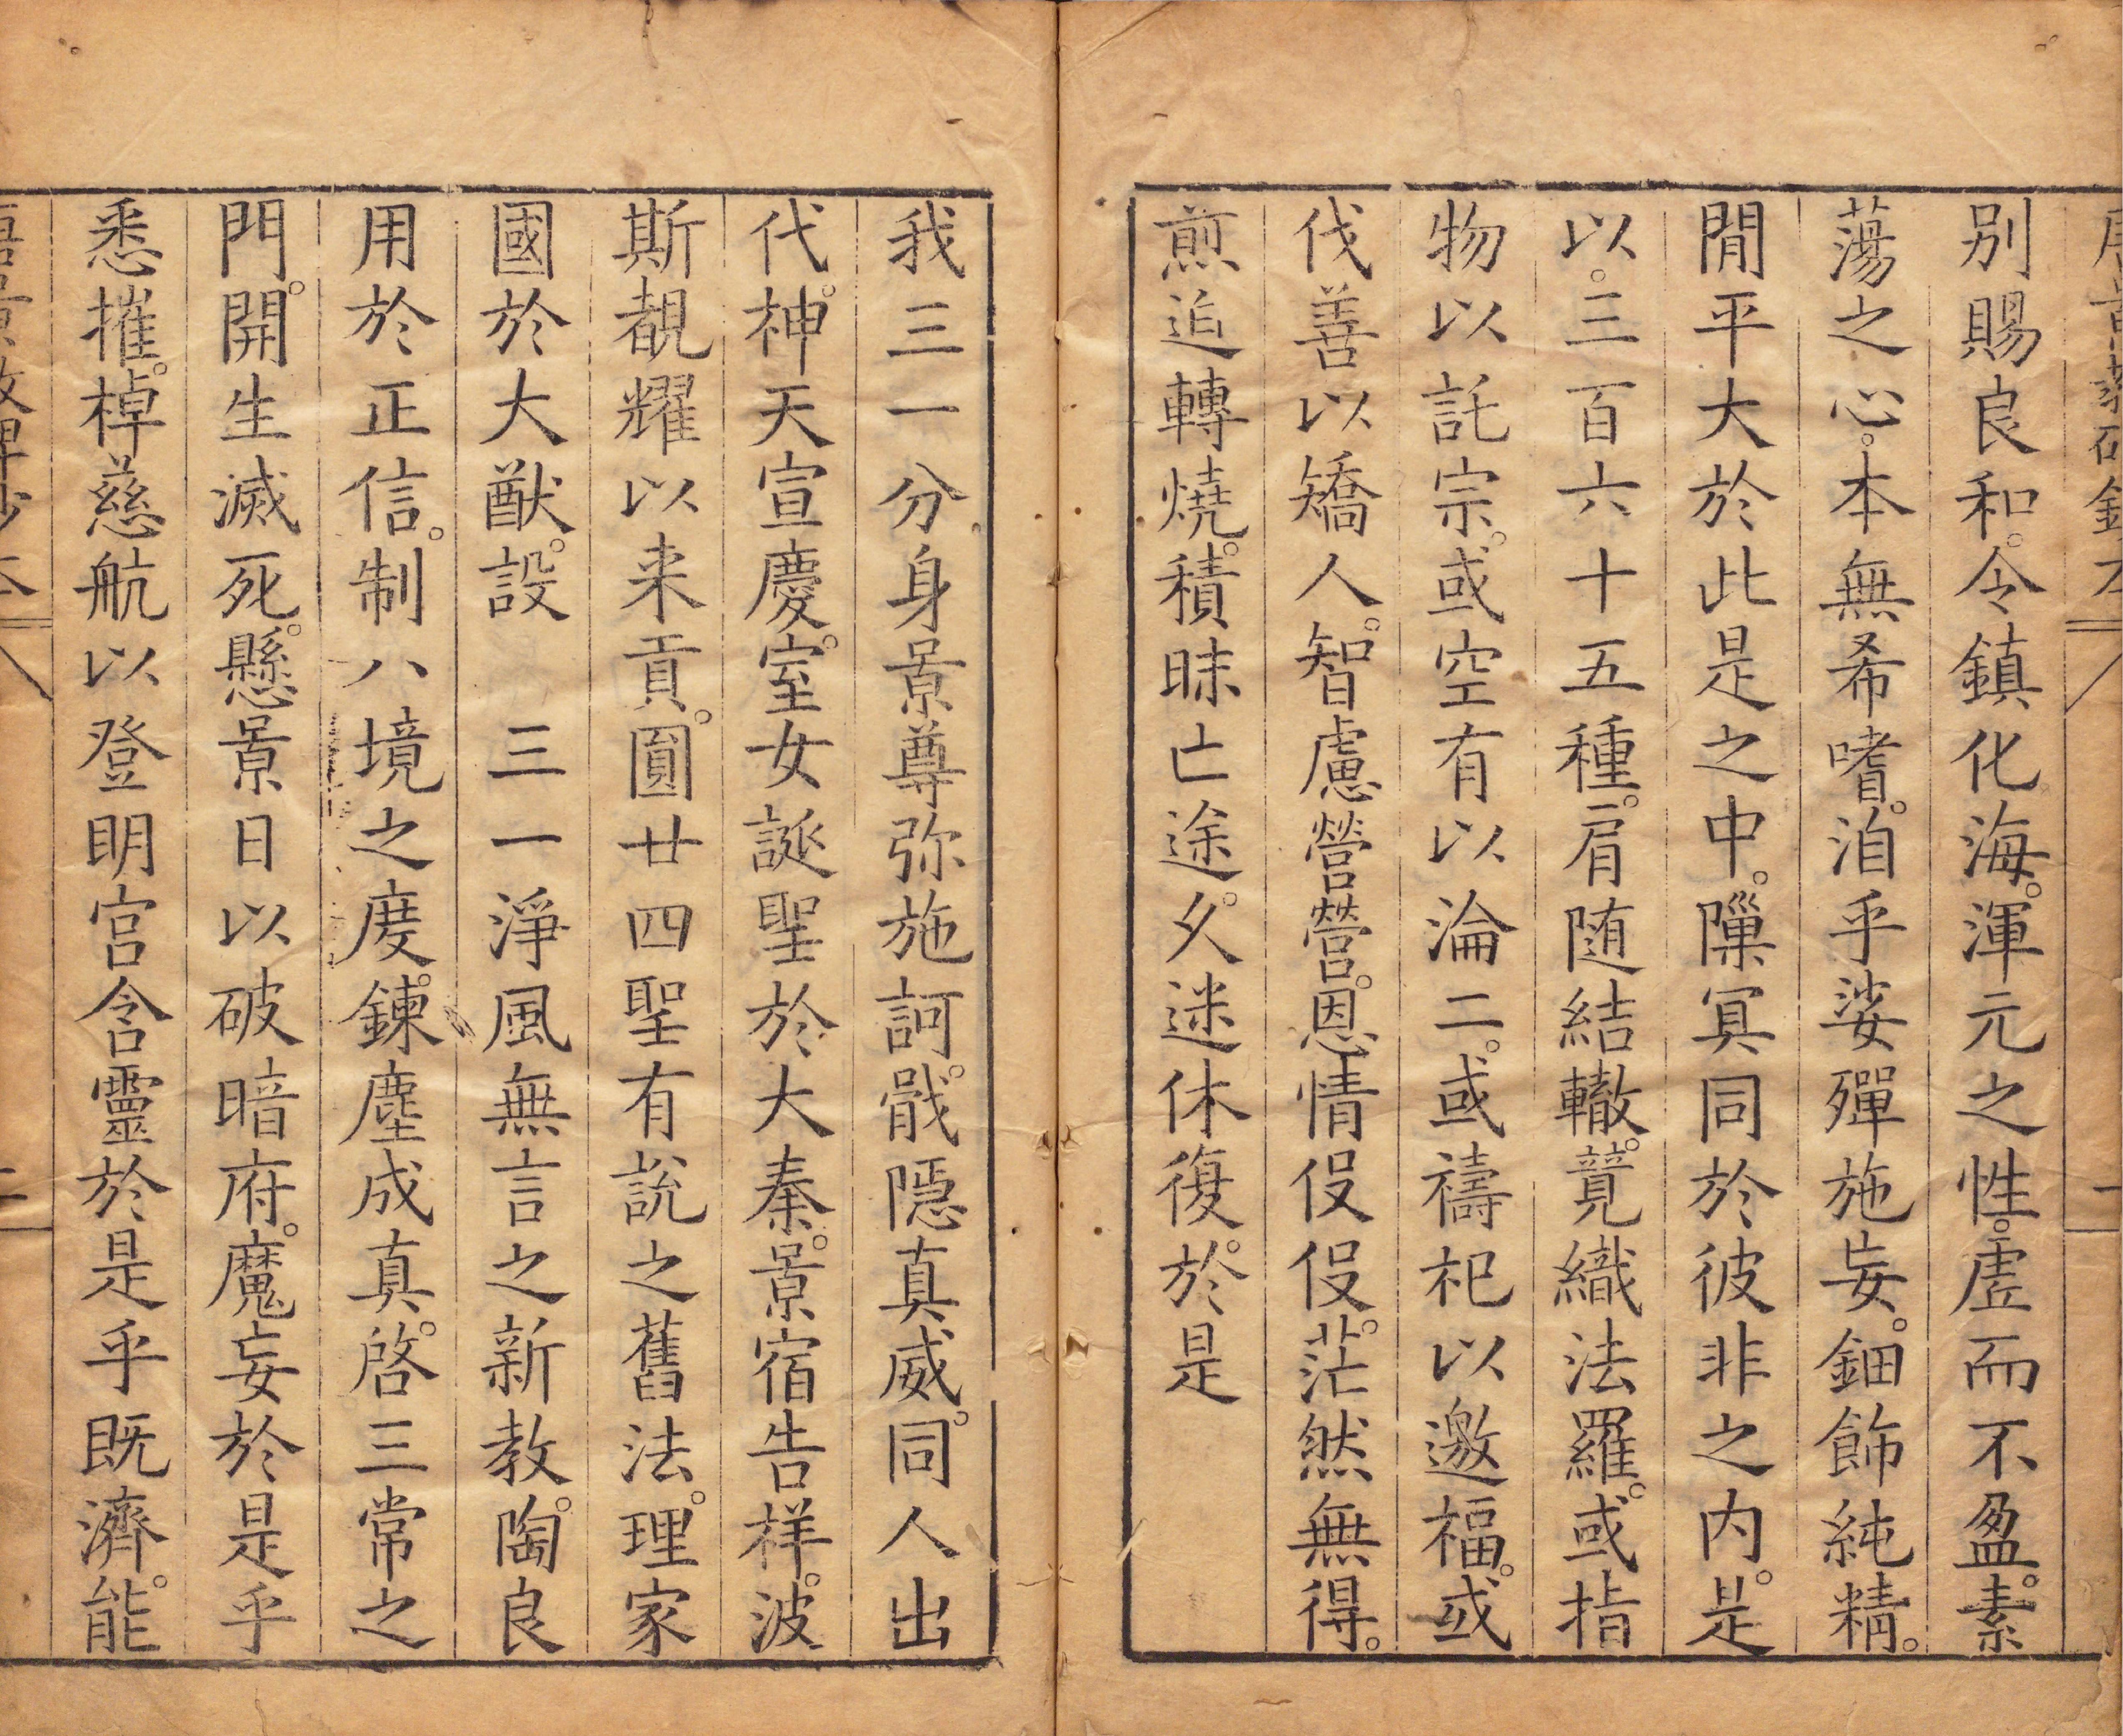 別賜良和。令鎮化海。渾元之性。虛而不盈。素
蕩之心。本無希嗜。洎乎娑殫施妄。鈿飾純精。
閒平大於此是之中。隟冥同於彼非之内。是
以。三百六十五種。肩随結轍。竟織法羅。或指
物以託宗。或空有以淪二。或禱祀以邀福。或
伐善以矯人。智慮營營。恩情伇伇。茫然無得。
煎迫轉燒。積昧亡途。久迷休復。於是
我三一分身景尊弥施訶。戢隠真威。同人出
代。神天宣慶。室女誕聖於大秦。景宿告祥。波
斯覩耀以来貢。圓廿四聖有說之舊法。理家
國於大猷。設　三一淨風無言之新教。陶良
用於正信。制八境之度。鍊塵成真。啓三常之
門。開生滅死。懸景日以破暗府。魔妄於是乎
悉摧。棹慈航以登眀宫含靈於是乎既濟。能